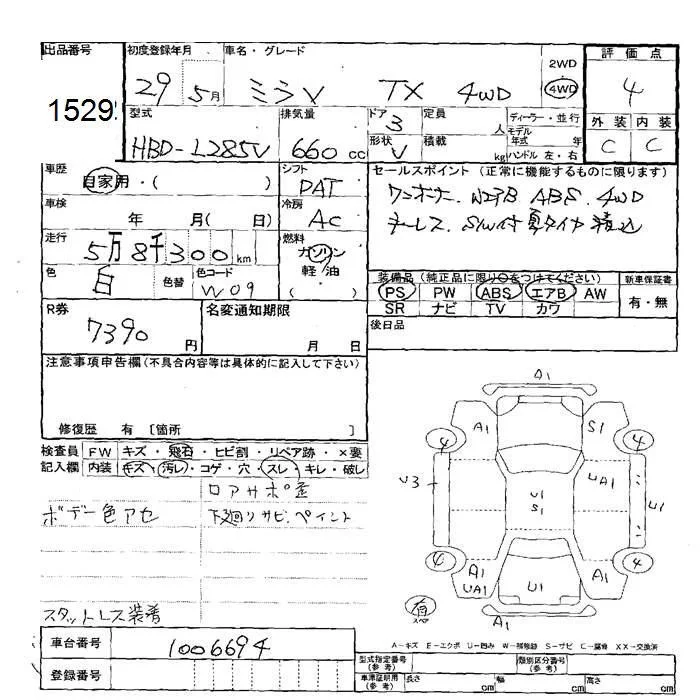 出品番号 初度登録年月 車名・グレード 2WD 評価点
1529 29 5月 ミラV TX 4WD 4WD 4
型式 排気量 ドア 定員 ディーラー・並行 外装 内装
HBD-L285V 660cc 3 人 モデル年式 年 C C
形状 V 積載 kg ハンドル 左・右
車歴 シフト セールスポイント (正常に機能するものに限ります)
自家用・( ) DAT ワンオーナー. Wエアb ABS. 4WD
車検 冷房 キーレス. S/W付 夏タイヤ積込
年 月( 日) AC
走行 燃料
5万8千300km ガソリン
色 色替 色コード 軽油 装備品(純正品に限り○をつけてください) 新車保証書
白 W09 ( ) PS PW ABS エアB AW 有・無
R券 名変通知期限 SR ナビ TV カワ
7390円 月 日 後日品
注意事項申告欄(不具合内容等は具体的に記入して下さい)
修復歴 有 [箇所 ]
検査員 FW キズ・飛石・ヒビ割・リペア跡・×要
記入欄 内装 キズ・汚レ・コゲ・穴・スレ・キレ・破レ
ロアサポ歪
ボデー色アセ 下廻りサビ.ペイント
スタットレス装着
A1
A1 S1
4 4
U3 UA1 U1
U1
S1
4 4
A1 A1
UA1 U1
有 スペア
A1
A-キズ E-エクボ U-凹み W-補修跡 S-サビ C-腐食 XX-交換済
車台番号 1006694
型式指定番号(参考) 類別区分番号(参考)
登録番号
車庫証明用(参考) 長さ cm 幅 cm 高さ cm